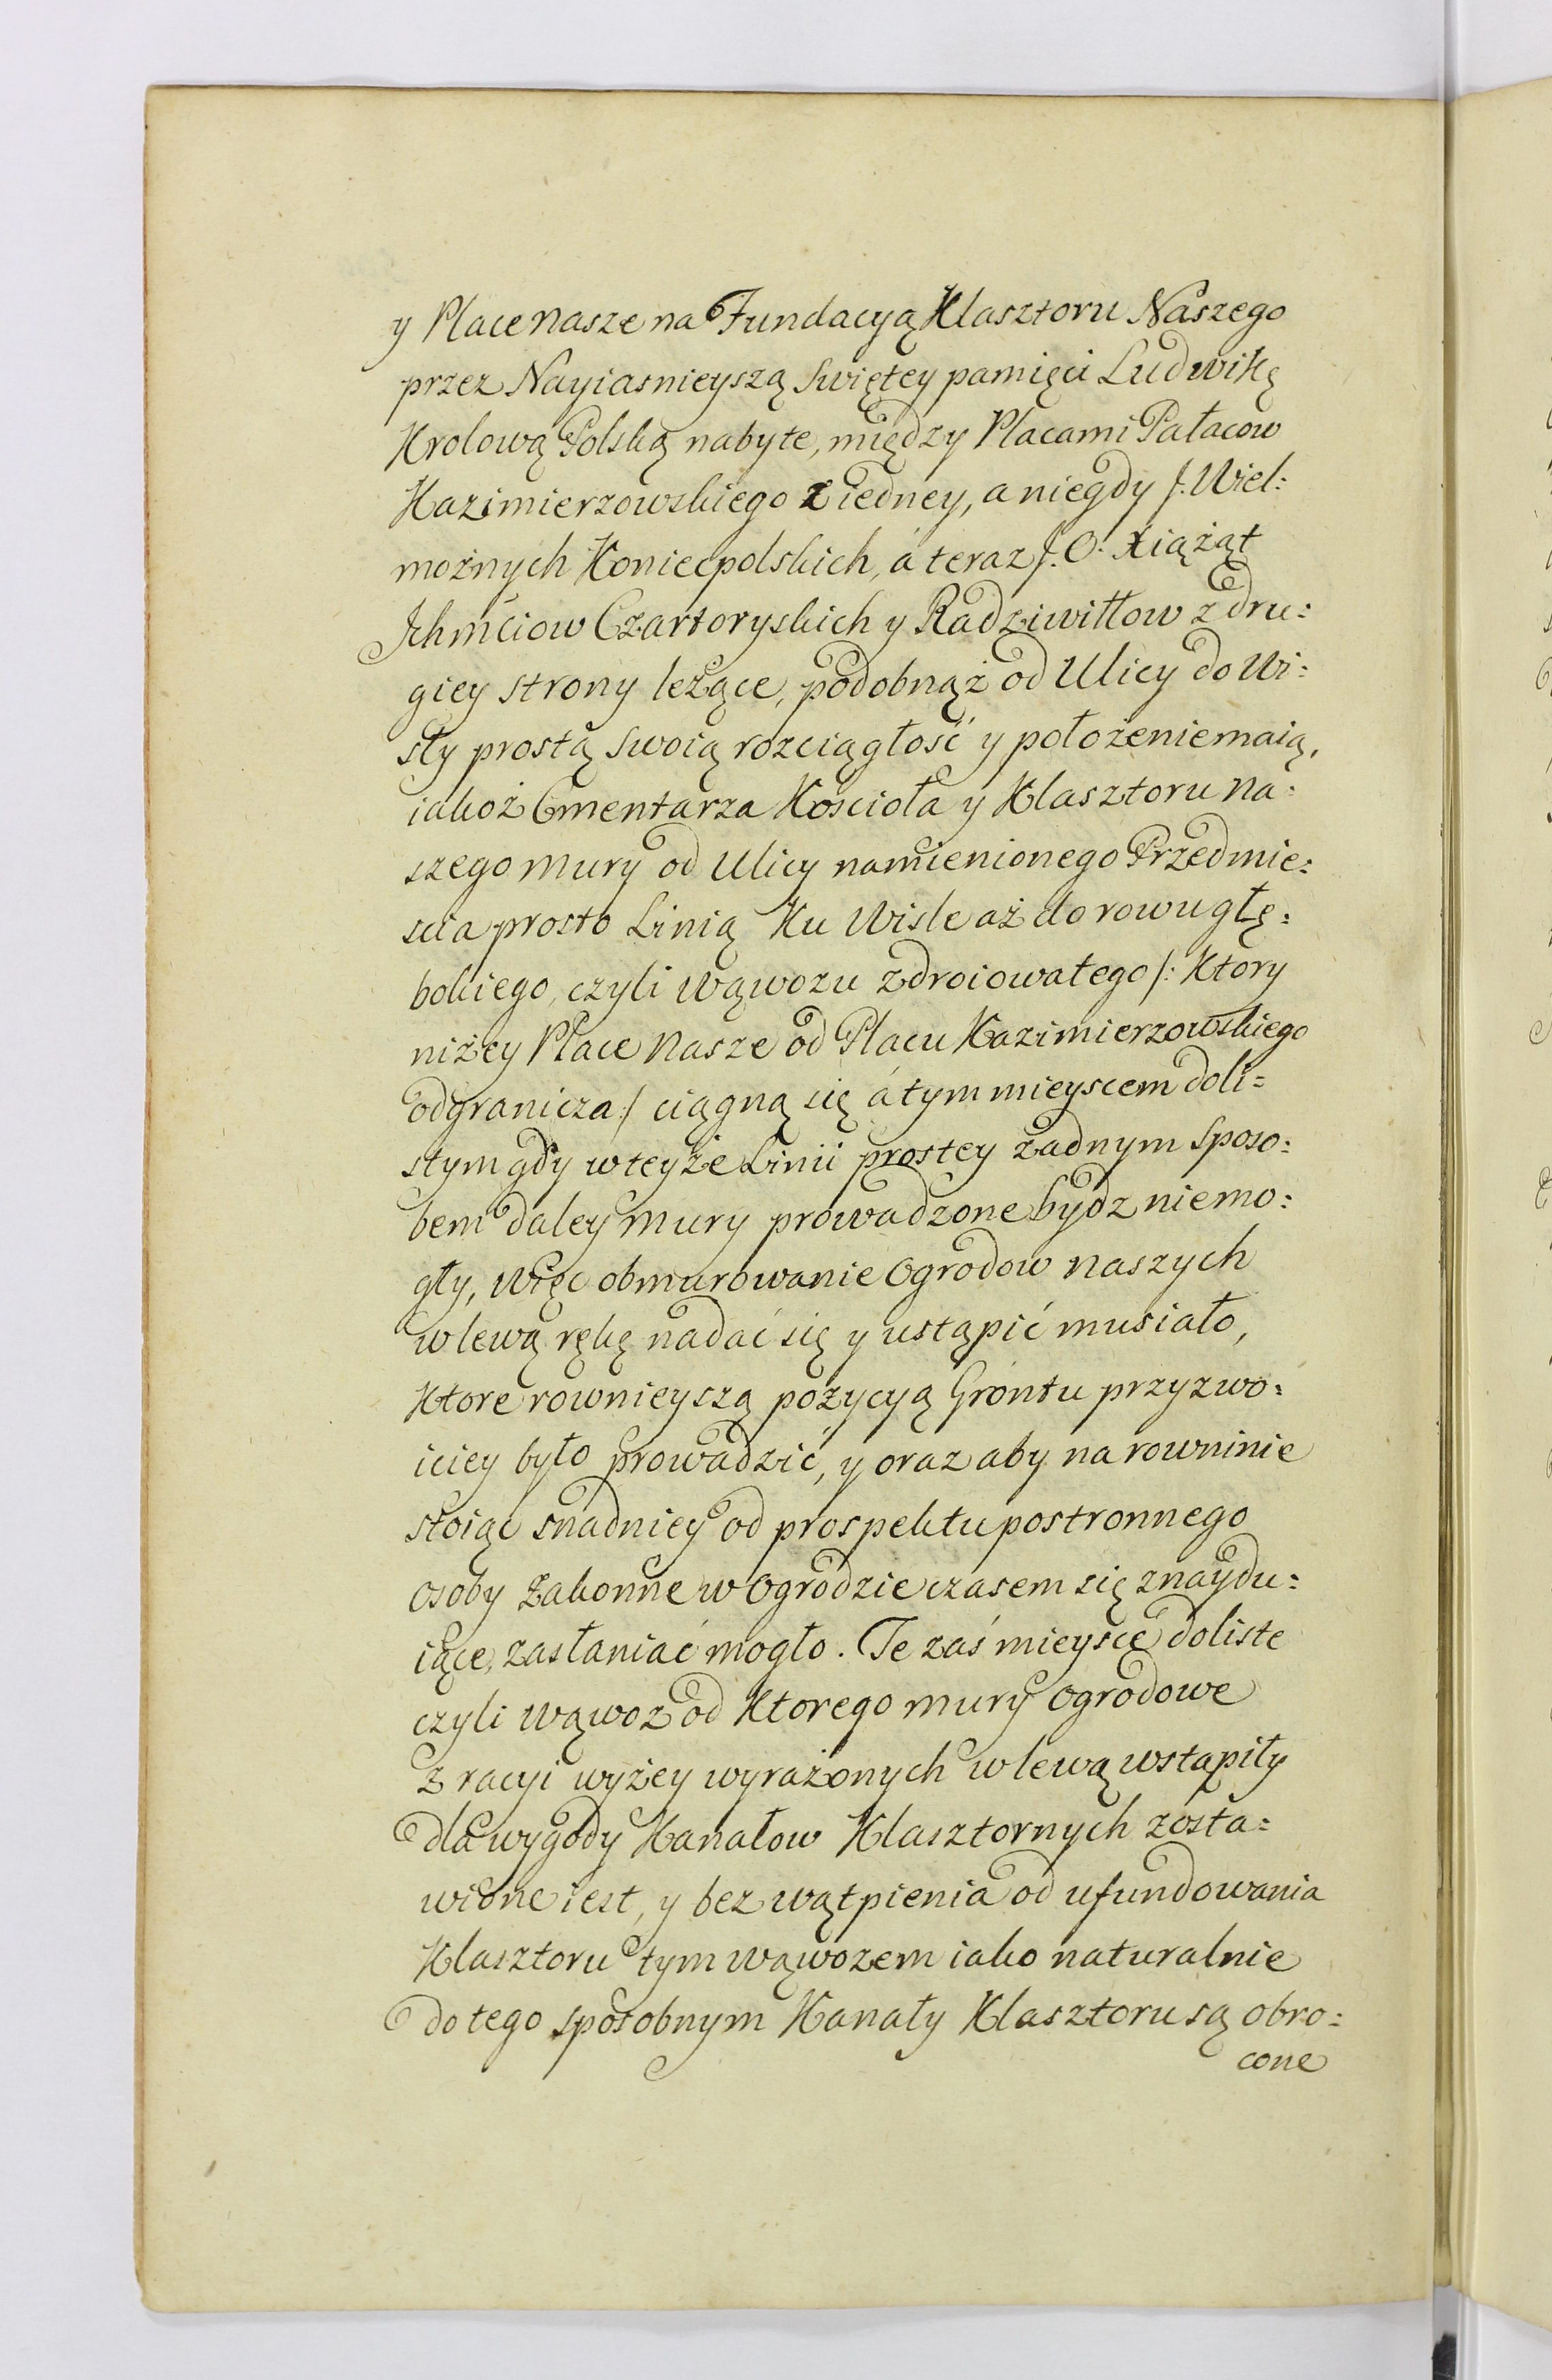 y Place nasze na Fundacyą Klasztoru Naszego
przez Nayiasnieyszą Swiętey pamięci Ludwikę
Krolową Polską nabyte, między Placami Pałacow
Kazimierzowskiego z iedney, a niegdy J. Wiel:
możnych Koniecpolskich, á teraz J. O. Xiążąt
Ichmciow Czartoryskich y Radziwiłłow z dru:
giey strony leżące, podobnąż od Ulicy do Wi:
sły prostą swoią rozciągłość y położenie maią,
iakoż Cmentarza Kościoła y Klasztoru na:
szego mury od Ulicy namienionego Przedmie:
scia prosto Linią Ku Wisle aż do rowu głę:
bokiego, czyli wąwozu zdroiowatego /: Ktory
niżey Place nasze od Placu Kazimierzowskiego
odgranicza :/ ciągną się á tym mieyscem doli=
stym gdy w teyże Linii prostey żadnym sposo:
bem daley mury prowadzone bydz niemo:
gły, więc obmurowanie Ogrodow naszych
w lewą rękę nadać się y ustąpić musiało,
Ktore rownieyszą pozycyą Grontu przyzwo:
iciey było prowadzić, y oraz aby na rowninie
stoiąc snadniey od prospektu postronnego
osoby Zakonne w Ogrodzie czasem się znaydu:
iące, zasłaniać mogło. Te zaś mieysce doliste
czyli wąwoz od Ktorego mury ogrodowe
z racyi wyżey wyrażonych w lewą wstąpiły
dla wygody Kanałow Klasztornych zosta=
wione iest, y bez wątpienia od ufundowania
Klasztoru tym wąwozem iako naturalnie
do tego sposobnym Kanały Klasztoru są obro:
cone